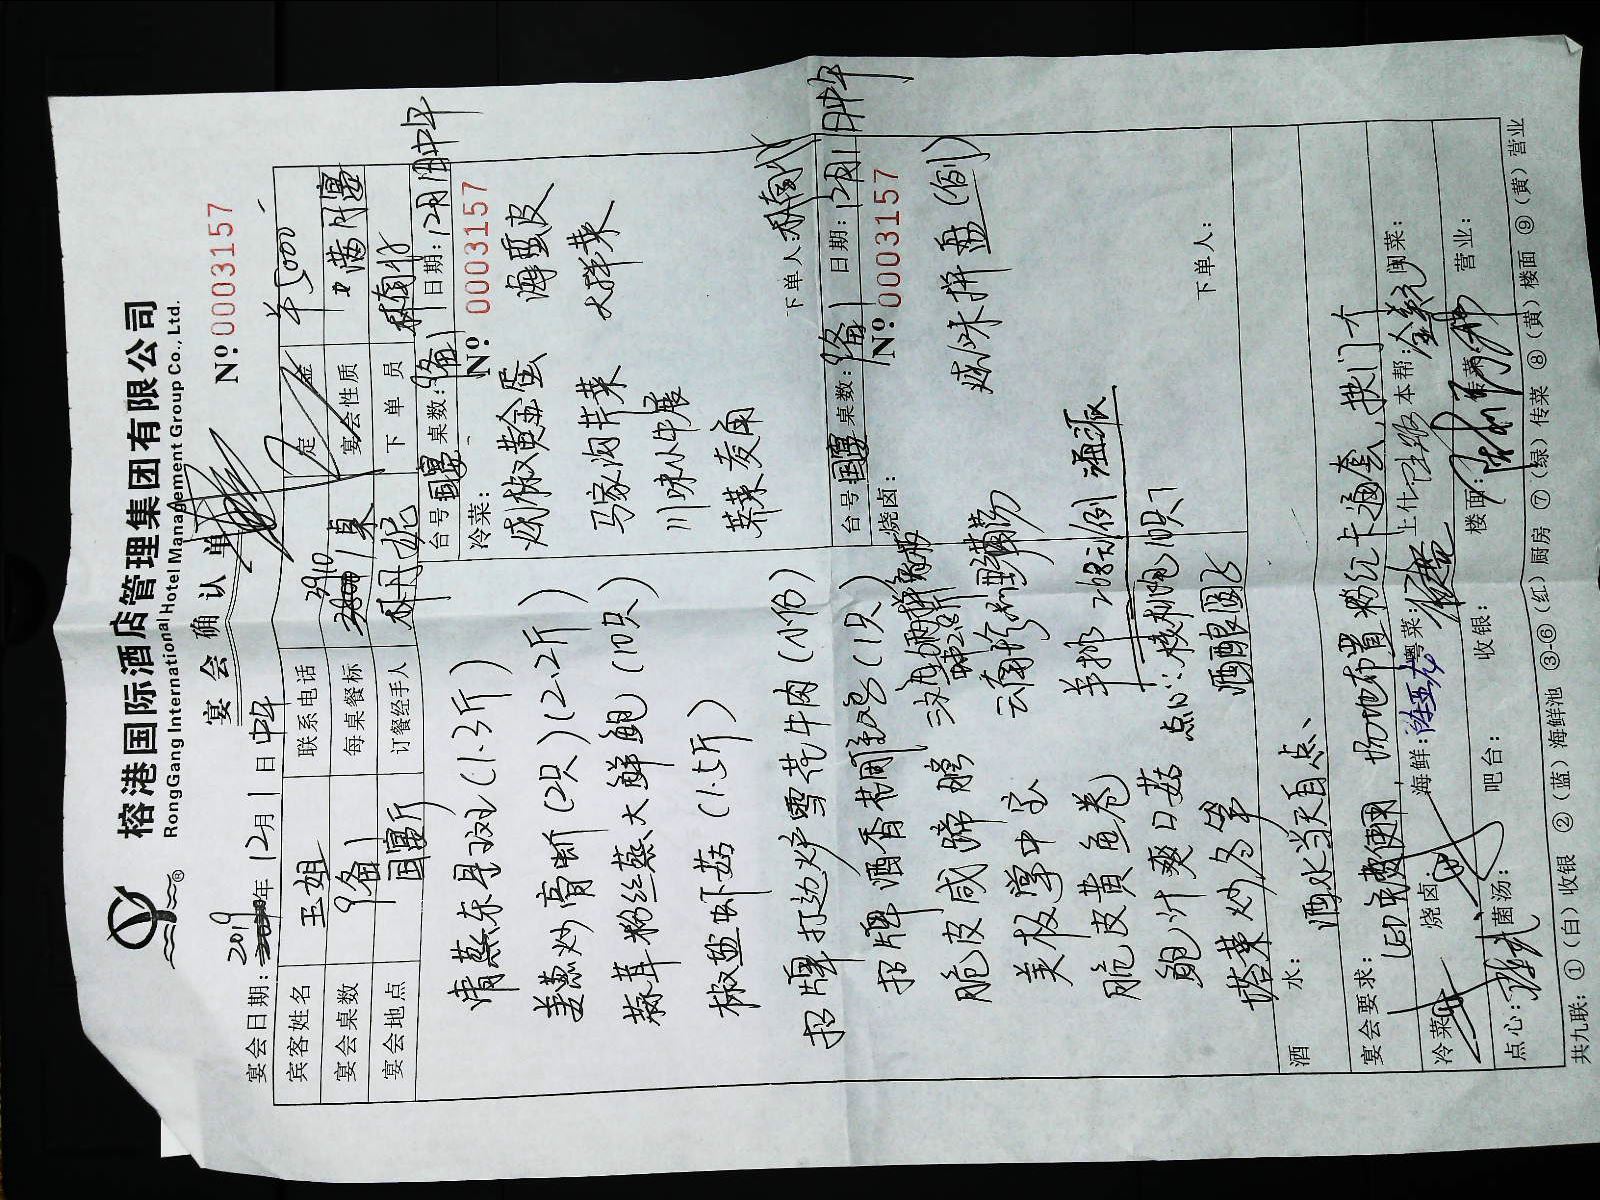 榕港国际酒店管理集团有限公司
RongGang International Hotel Management Group Co., Ltd.
宴会确认单
№:0003157
宴会日期:2019年12月1日中午
宾客姓名 王姐 联系电话 定金 ¥5000
宴会桌数 9备1 每桌餐标 3910 1桌 宴会性质 满月宴
宴会地点 国宴厅 订餐经手人 下单员
清蒸东星斑(1.3斤)
姜葱炒膏蟹(2只)(2.2斤)
蒜茸粉丝蒸大鲜鲍(10只)
椒盐虾菇(1.5斤)
招牌打边炉雪花牛肉(小份)
招牌酒香(1只)
脆皮咸蹄膀
美极掌中宝
脆皮黄鱼卷
鲍汁爽口菇
塔菜炒冬笋
羊排 268元/例 海派
点心:核桃包10只
酒酿圆子
台号 国宴 桌数:9备1 日期:12月1日中午
冷菜: №:0003157
咸椒黄金蛋 海蜇皮
马家沟芹菜 大拌菜
川味小牛展
荠菜
下单人:
台号 国宴 桌数:9备1 日期:12月1日中午
烧卤: №:0003157
咸味拼盘(例)
下单人:
酒水: 酒水当天自点、
宴会要求: 场地布置粉红卡通套、
冷菜: 烧卤: 海鲜: 粤菜: 上什: 本帮: 闽菜:
点心: 菌汤: 吧台: 收银: 楼面: 传菜: 营业:
共九联:①(白)收银 ②(蓝)海鲜池 ③-⑥(红)厨房 ⑦(绿)传菜 ⑧(黄)楼面 ⑨(黄)营业